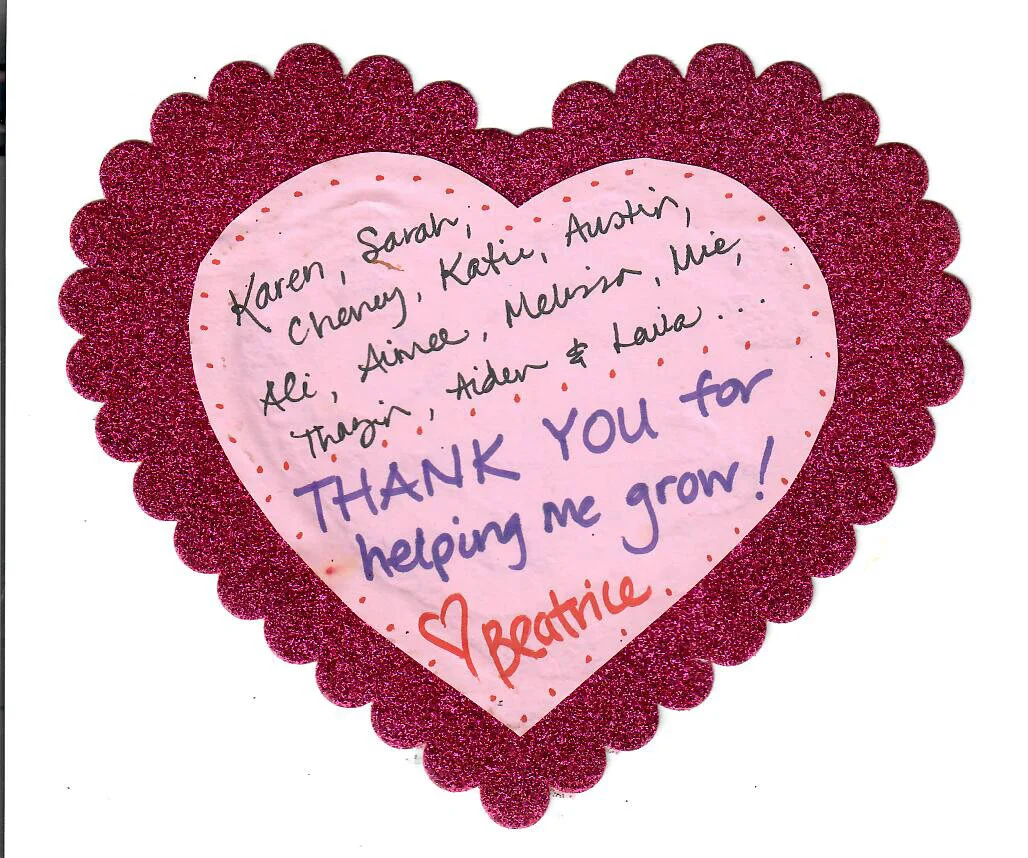 Karen, Sarah,
Cheney, Katie, Austin,
Ali, Aimee, Melissa, Mie,
Thazin, Aiden & Lavia...
THANK YOU for
helping me grow!
♡ Beatrice